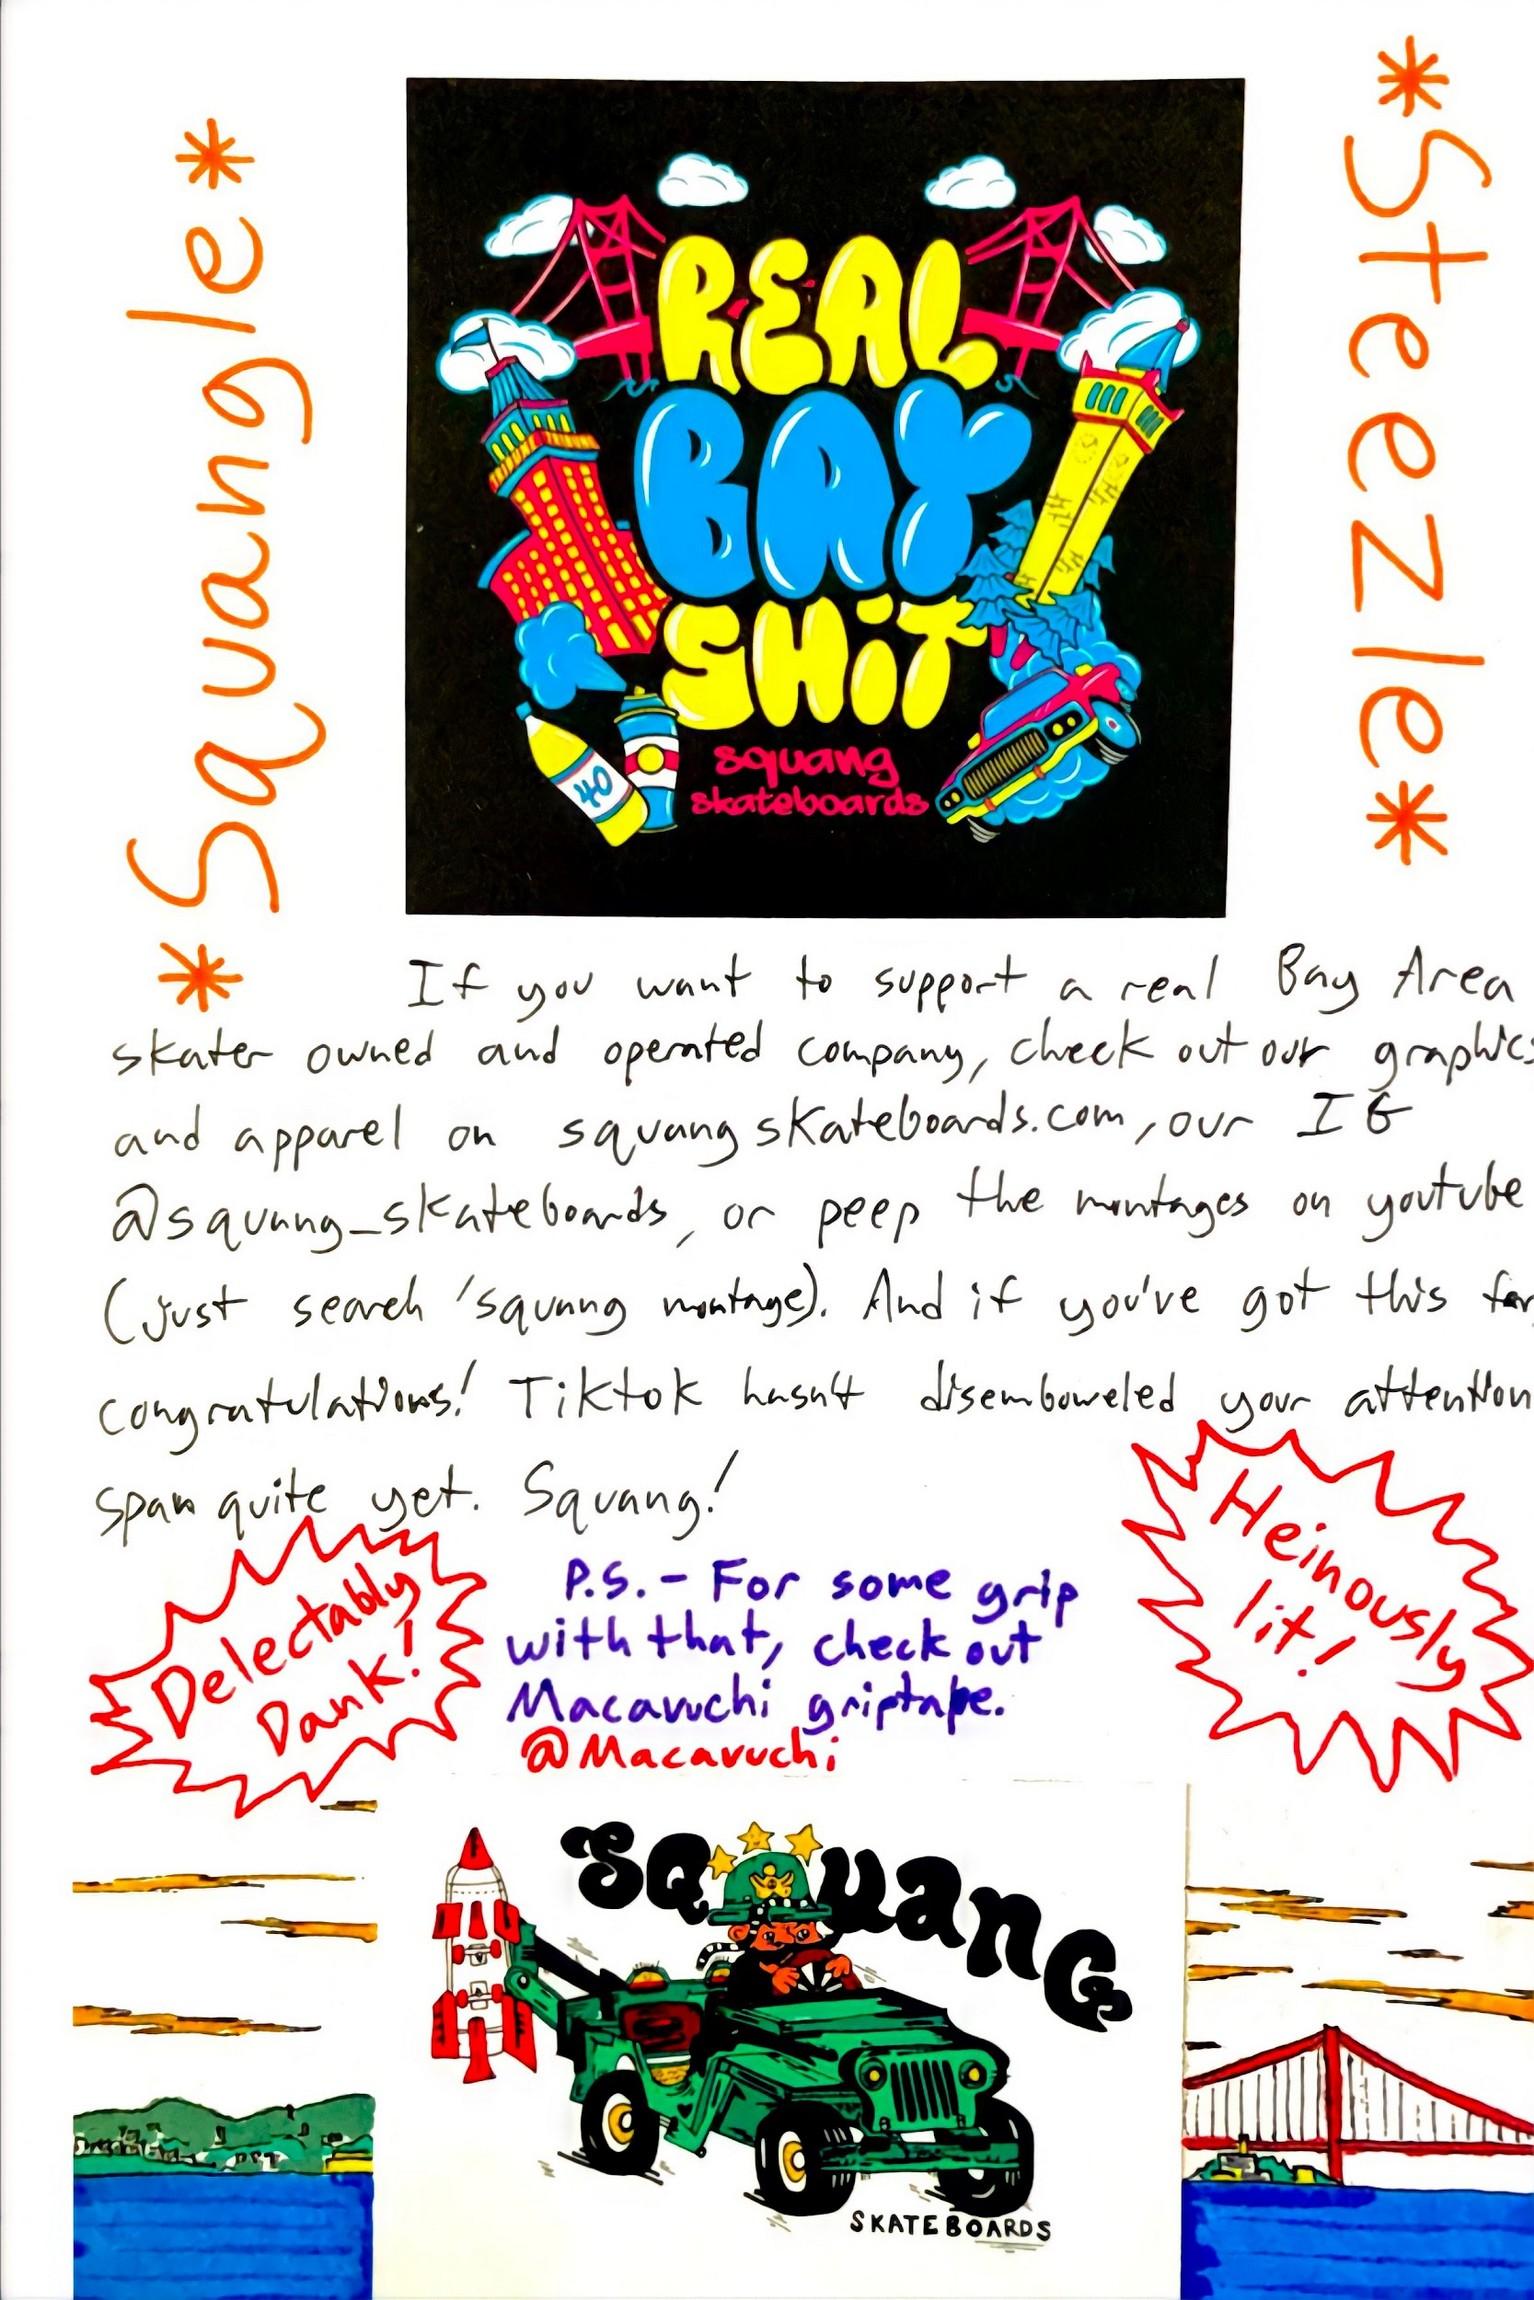 *Squangle*
*Steezle*
REAL
BAY
SHiT
squang
skateboards
40
If you want to support a real Bay Area
skater owned and operated company, check out our graphics
and apparel on squangskateboards.com, our IG
@squang_skateboards, or peep the montages on youtube
(just search 'squang montage). And if you've got this far,
congratulations! Tiktok hasn't disemboweled your attention
span quite yet. Squang!
Delectably
Dank!
Heinously
lit!
P.S. - For some grip
with that, check out
Macavuchi griptape.
@Macavuchi
SQUANG
SKATEBOARDS